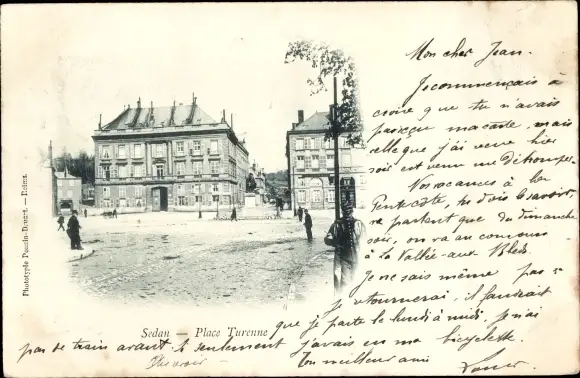 Mon cher Jean.
Je commençais à
croire que tu n'avais
pas reçu ma carte, mais
celle que j'ai reçue hier
soir est venu me détromper.
Vos vacances à la
Pentecôte, tu dois le savoir,
ne partent que du dimanche
soir, on va au concours
à la Vallée-aux-Bleds.
Je ne sais même pas si
je retournerai, il faudrait
que je parte le lundi à midi, je n'ai
pas de train avant. Si seulement j'avais eu ma bicyclette.
Au revoir Ton meilleur ami
Sedan — Place Turenne
Phototypie Poncin-Dinant. — Reims.